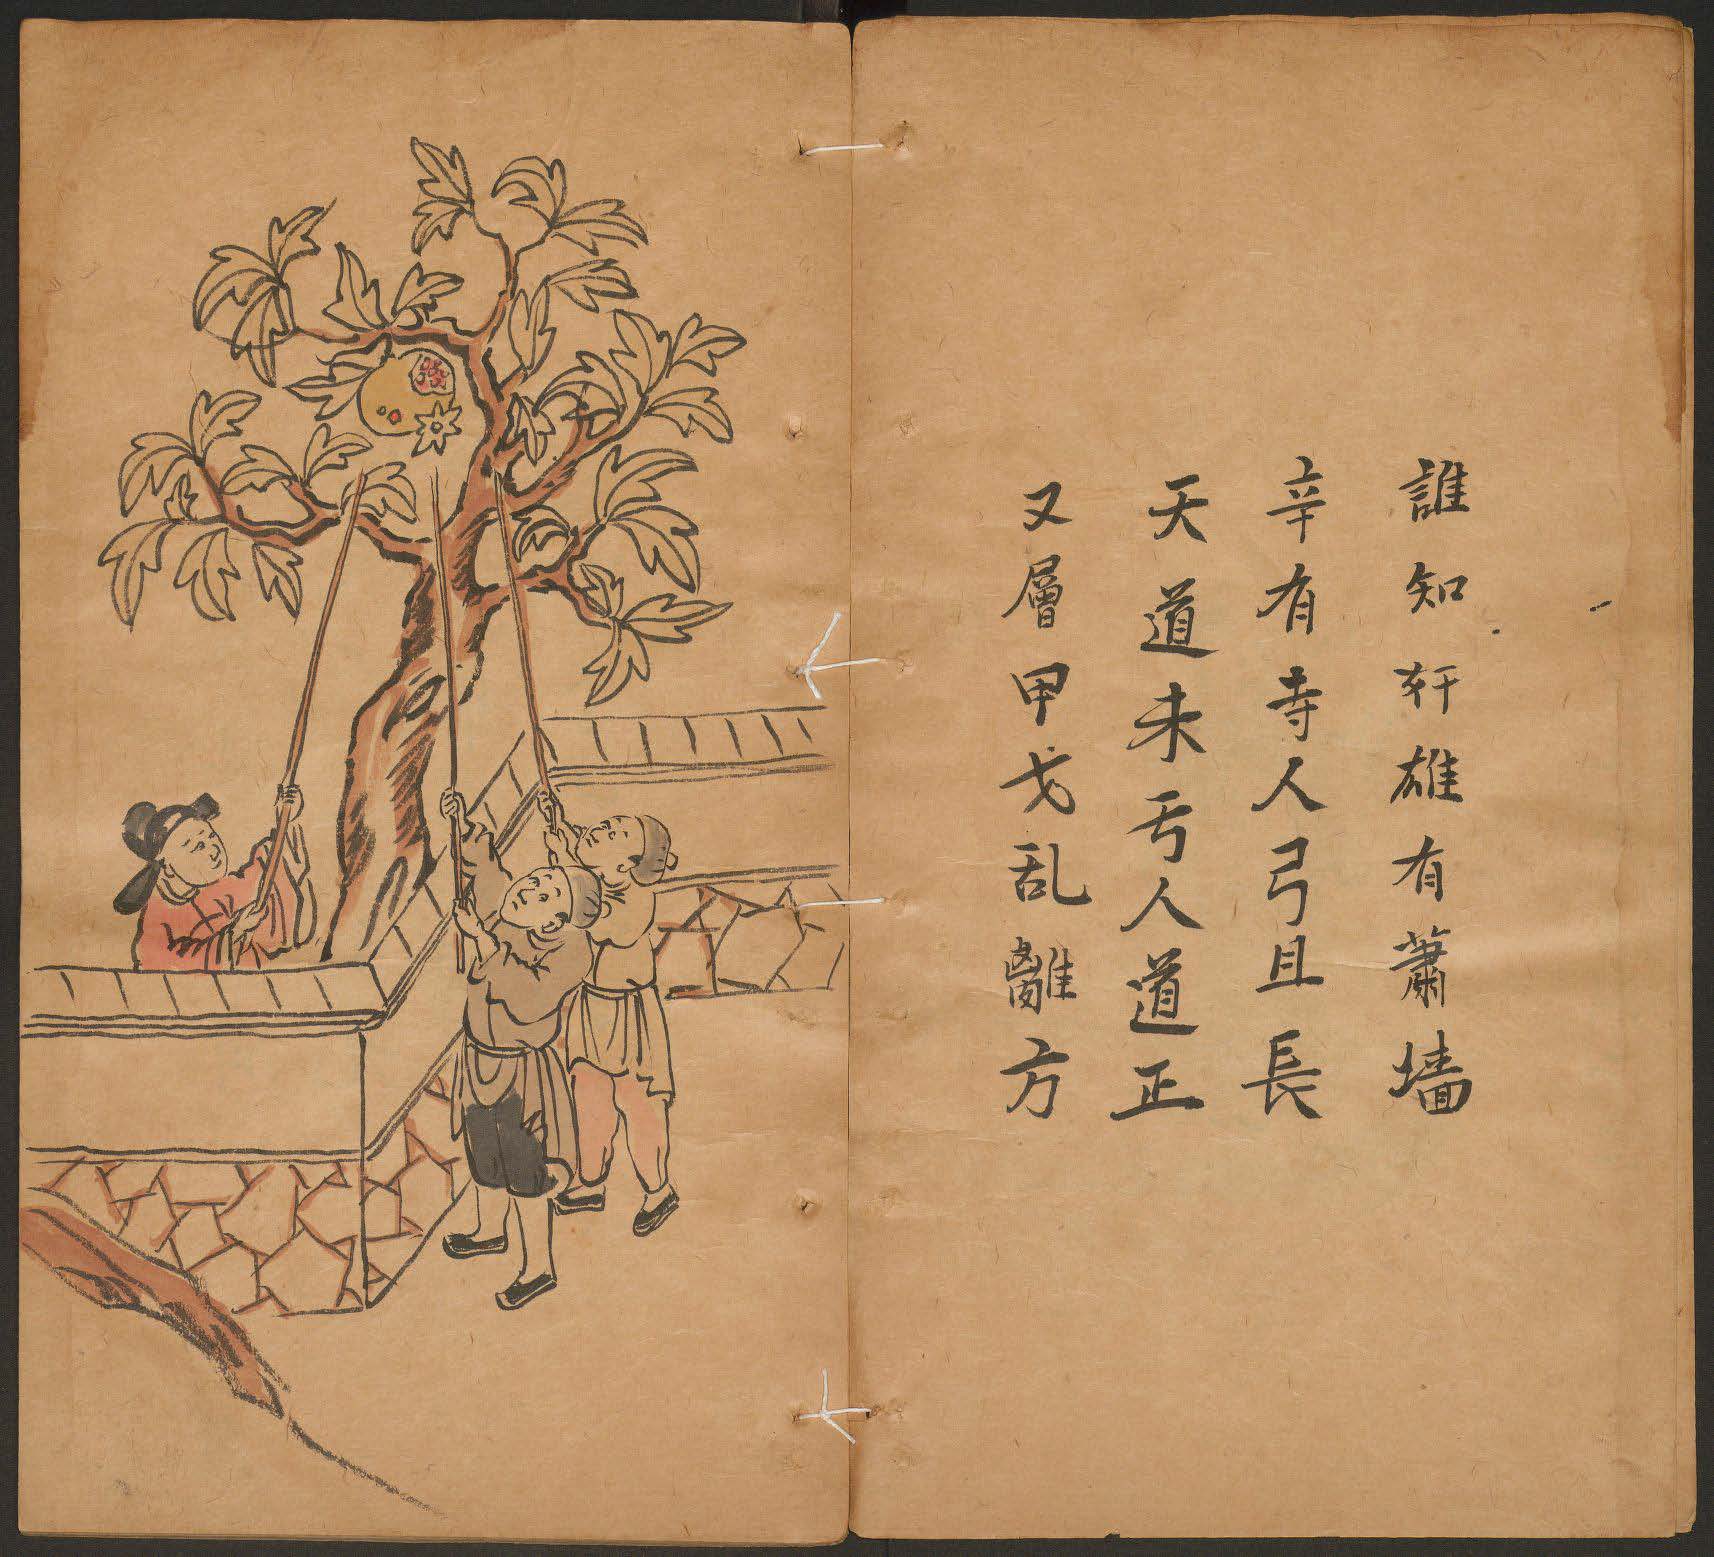 誰知奸雄有蕭墙
辛有寺人弓且長
天道未亏人道正
又層甲戈乱離方